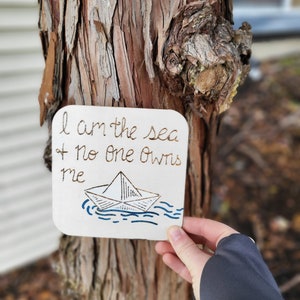 I am the sea
+ no one owns
me